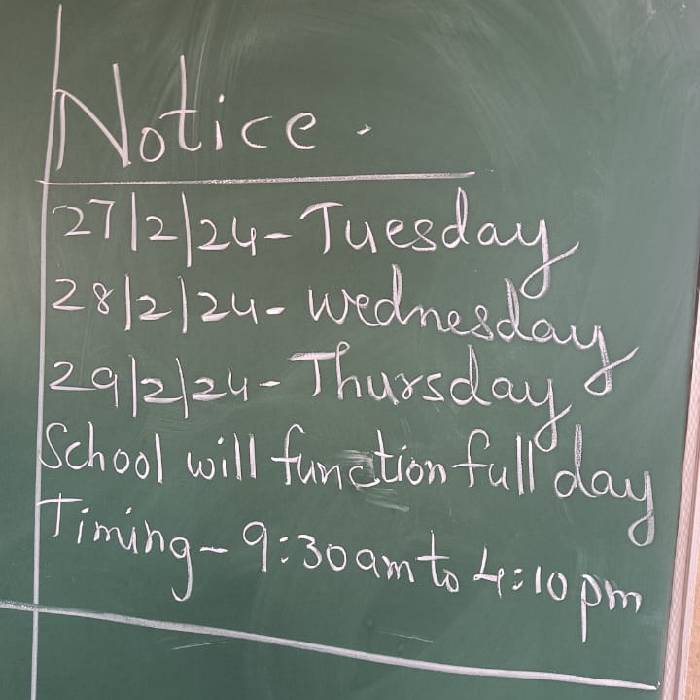 Notice.
27/2/24-Tuesday
28/2/24-Wednesday
29/2/24-Thursday
School will function full day
Timing-9:30am to 4:10pm